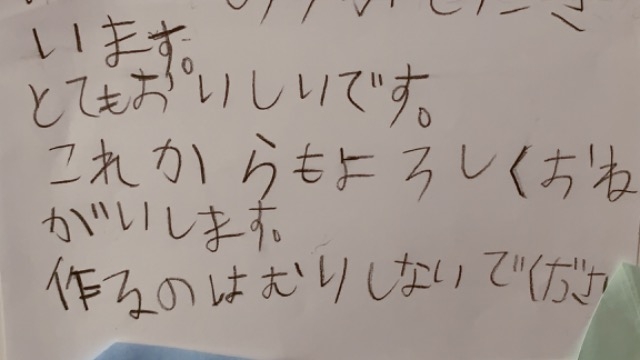 います。
とてもおいしいです。
これからもよろしくおね
がいします。
作るのはむりしないでくださ